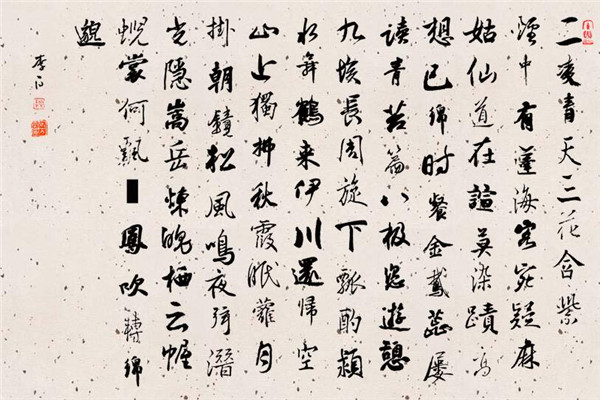 二夌青天三花含紫
中有蓬海客宛疑麻
姑仙道在諠莫染蹟
想已綿時餐金鵞蕊屡
读青苔篇八极恣遊憩
九垓長周旋下瓢酌颍
水舞鶴来伊川還歸空
山上獨拂秋霞眠蘿月
掛朝鏡松風鳴夜弦潛
光隱嵩岳煉魄栖云幄
蜺裳何飄鳳吹轉綿
邈
李白